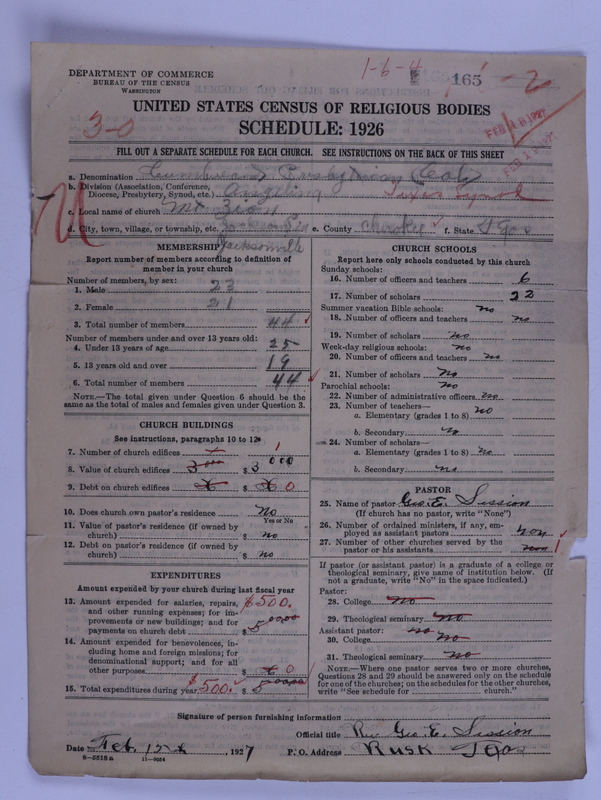 1-6-4 165 -2
DEPARTMENT OF COMMERCE
BUREAU OF THE CENSUS
WASHINGTON
UNITED STATES CENSUS OF RELIGIOUS BODIES
3-0
SCHEDULE: 1926
FEB 16 1927
FILL OUT A SEPARATE SCHEDULE FOR EACH CHURCH. SEE INSTRUCTIONS ON THE BACK OF THIS SHEET
a. Denomination Cumberland Presbyterian (Col)
b. Division (Association, Conference, Diocese, Presbytery, Synod, etc.) Angelina Texas Synod
c. Local name of church Mt Zion
d. City, town, village, or township, etc. Jacksonville e. County Cherokee f. State Texas
MEMBERSHIP
Report number of members according to definition of
member in your church
Number of members, by sex:
1. Male 23
2. Female 21
3. Total number of members 44
Number of members under and over 13 years old:
4. Under 13 years of age 25
5. 13 years old and over 19
6. Total number of members 44
NOTE.—The total given under Question 6 should be the
same as the total of males and females given under Question 3.
CHURCH BUILDINGS
See instructions, paragraphs 10 to 12
7. Number of church edifices 1
8. Value of church edifices $ 3000
9. Debt on church edifices $ 0
10. Does church own pastor's residence? No
Yes or No
11. Value of pastor's residence (if owned by
church) $ no
12. Debt on pastor's residence (if owned by
church) $ no
EXPENDITURES
Amount expended by church during last fiscal year
13. Amount expended for salaries, repairs, $500.
and other running expenses; for im-
provements or new buildings; and for
payments on church debt $
14. Amount expended for benevolences, in-
cluding home and foreign missions; for
denominational support; and for all
other purposes $ 0
15. Total expenditures during year $500. $
CHURCH SCHOOLS
Report here only schools conducted by this church
Sunday schools:
16. Number of officers and teachers 6
17. Number of scholars 22
Summer vacation Bible schools: no
18. Number of officers and teachers no
19. Number of scholars no
Week-day religious schools: no
20. Number of officers and teachers no
21. Number of scholars no
Parochial schools: no
22. Number of administrative officers no
23. Number of teachers—
a. Elementary (grades 1 to 8) no
b. Secondary no
24. Number of scholars—
a. Elementary (grades 1 to 8) no
b. Secondary no
PASTOR
25. Name of pastor Geo. E. Session
(If church has no pastor, write "None")
26. Number of ordained ministers, if any, em-
ployed as assistant pastors non
27. Number of other churches served by the
pastor or his assistants 1
If pastor (or assistant pastor) is a graduate of a college or
theological seminary, give name of institution below. (If
not a graduate, write "No" in the space indicated.)
Pastor:
28. College no
29. Theological seminary no
Assistant pastor: no
30. College no
31. Theological seminary no
NOTE.—Where one pastor serves two or more churches,
Questions 28 and 29 should be answered only on the schedule
for one of the churches; on the schedules for the other churches,
write "See schedule for church."
Signature of person furnishing information
Official title Rev Geo. E. Session
Date Feb, 1927 P. O. Address Rusk Texas
8-5518a 11-9054